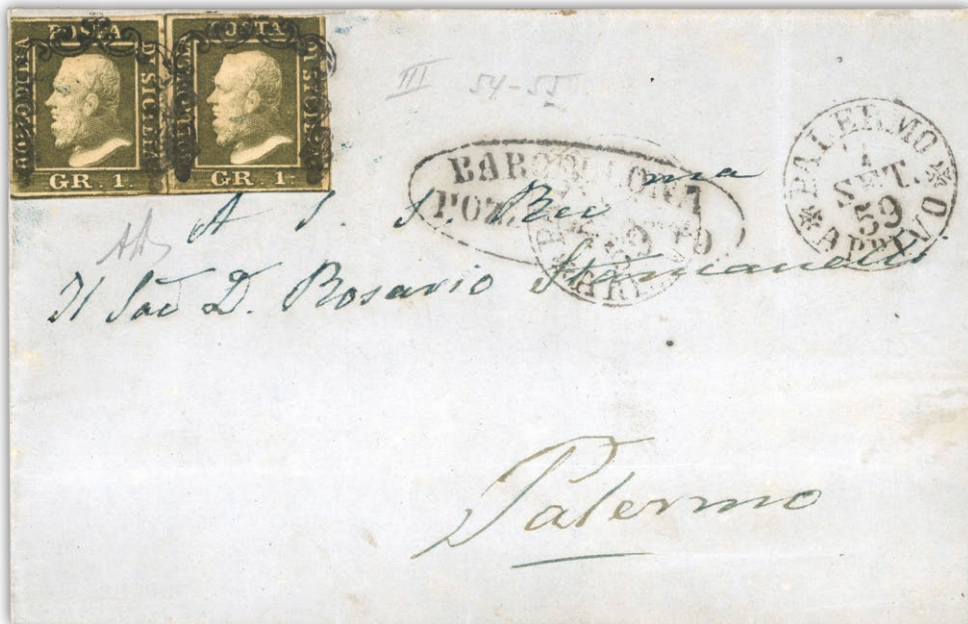 POSTA POSTA
BOLLO DELLA DI SICILIA BOLLO DELLA DI SICILIA
GR. 1. GR. 1.
III 54-55
BARCELLONA
POZ
PALERMO
SET.
59
ARRIVO
A S. S. Rev ma
Il Sac D. Rosario
Palermo